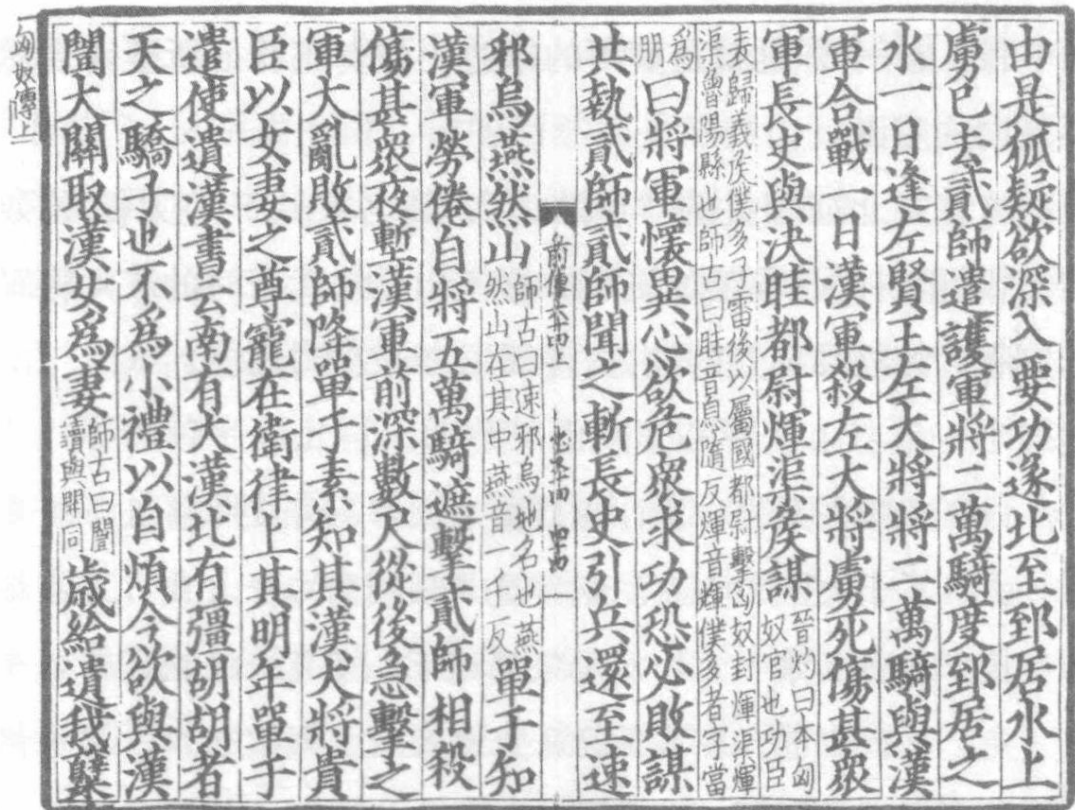 由是狐疑欲深入要功遂北至郅居水上
虜已去貳師遣護軍將二萬騎度郅居之
水一日逢左賢王左大將將二萬騎與漢
軍合戰一日漢軍殺左大將虜死傷甚衆
軍長史與決眭都尉煇渠侯謀晉灼曰本匈奴官也功臣
表歸義侯僕多子雷後以屬國都尉擊匈奴封煇渠煇
渠魯陽縣也師古曰眭音息隨反煇音輝僕多者字當
爲朋曰將軍懷異心欲危衆求功恐必敗謀
共執貳師貳師聞之斬長史引兵還至速
前傳六十四上
邪烏燕然山師古曰速邪烏地名也燕然山在其中燕音一千反單于知
漢軍勞倦自將五萬騎遮擊貳師相殺
傷甚衆夜塹漢軍前深數尺從後急擊之
軍大亂敗貳師降單于素知其漢大將貴
臣以女妻之尊寵在衛律上其明年單于
遣使遺漢書云南有大漢北有彊胡胡者
天之驕子也不爲小禮以自煩今欲與漢
闓大關取漢女爲妻師古曰闓讀與開同歲給遺我糱
匈奴傳上